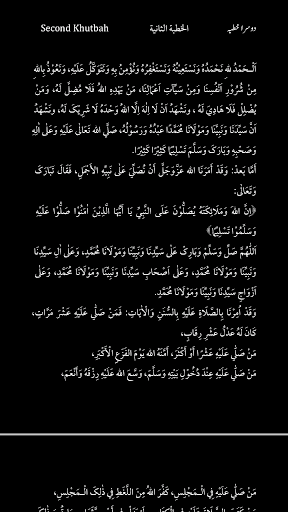 Second Khutbah الخطبة الثانية دوسرا خطبہ
اَلْـحَمْدُ لِلهِ نَحْمَدُهُ وَنَسْتَعِيْنُهُ وَنَسْتَغْفِرُهُ وَنُؤْمِنُ بِهِ وَنَتَوَكَّلُ عَلَيْهِ، وَنَعُوْذُ بِاللهِ
مِنْ شُرُوْرِ اَنْفُسِنَا وَمِنْ سَيِّآتِ اَعْمَالِنَا، مَنْ يَهْدِهِ اللهُ فَلَا مُضِلَّ لَهُ، وَمَنْ
يُضْلِلْ فَلَا هَادِيَ لَهُ، وَنَشْهَدُ اَنْ لَا اِلٰهَ اِلَّا اللهُ وَحْدَهُ لَا شَرِيْكَ لَهُ، ونَشْهَدُ
اَنَّ سَيِّدَنَا وَنَبِيَّنَا وَمَوْلَانَا مُحَمَّدًا عَبْدُهُ وَرَسُوْلُهُ، صَلَّى الله تَعَالٰى عَلَيْهِ وَعَلٰى اٰلِهِ
وَصَحْبِهِ وَبَارَكَ وَسَلَّمَ تَسْلِيْمًا كَثِيْرًا كَثِيْرًا.
أَمَّا بَعدُ: وَقَدْ أَمَرَنَا الله عَزَّوَجَلَّ أَنْ نُصَلِّيَ عَلٰى نَبِيِّهِ الأَجْمَلِ، فَقَالَ تَبَارَكَ
وَتَعَالٰى:
﴿إِنَّ اللهَ وَمَلَائِكَتَهُ يُصَلُّوْنَ عَلَى النَّبِيِّ يَا أَيُّهَا الَّذِيْنَ اٰمَنُوْا صَلُّوْا عَلَيْهِ
وَسَلِّمُوْا تَسْلِيْمًا﴾
اَللّٰهُمَّ صَلِّ وَسَلِّمْ وَبَارِكْ عَلٰى سَيِّدِنَا وَنَبِيِّنَا وَمَوْلَانَا مُحَمَّدٍ، وَعَلٰى اٰلِ سَيِّدِنَا
وَنَبِيِّنَا وَمَوْلَانَا مُحَمَّدٍ، وَعَلٰى اَصْحَابِ سَيِّدِنَا وَنَبِيِّنَا وَمَوْلَانَا مُحَمَّدٍ، وَعَلٰى
اَزْوَاجِ سَيِّدِنَا وَنَبِيِّنَا وَمَوْلَانَا مُحَمَّدٍ.
وَقَدْ اُمِرْنَا بِالصَّلَاةِ عَلَيْهِ بِالسُّنَنِ وَالْاٰيَاتِ: فَمَنْ صَلّٰى عَلَيْهِ عَشْرَ مَرَّاتٍ،
كَانَ لَهُ عَدْلُ عَشْرِ رِقَابٍ،
مَنْ صَلّٰى عَلَيْهِ عَشْرًا اَوْ اَكْثَرَ، اَمَّنَهُ اللهُ يَوْمَ الفَزَعِ الْأَكْبَرِ،
مَنْ صَلّٰى عَلَيْهِ عِنْدَ دُخُوْلِ بَيْتِهِ وَسَلَّمَ، وَسَّعَ الله عَلَيْهِ رِزْقَهُ وَأَنْعَمَ،
مَنْ صَلّٰى عَلَيْهِ فِي الْـمَجْلِسِ، كَفَّرَ اللهُ مِنَ اللَّغَطِ فِي ذٰلِكَ الْـمَجْلِسِ،